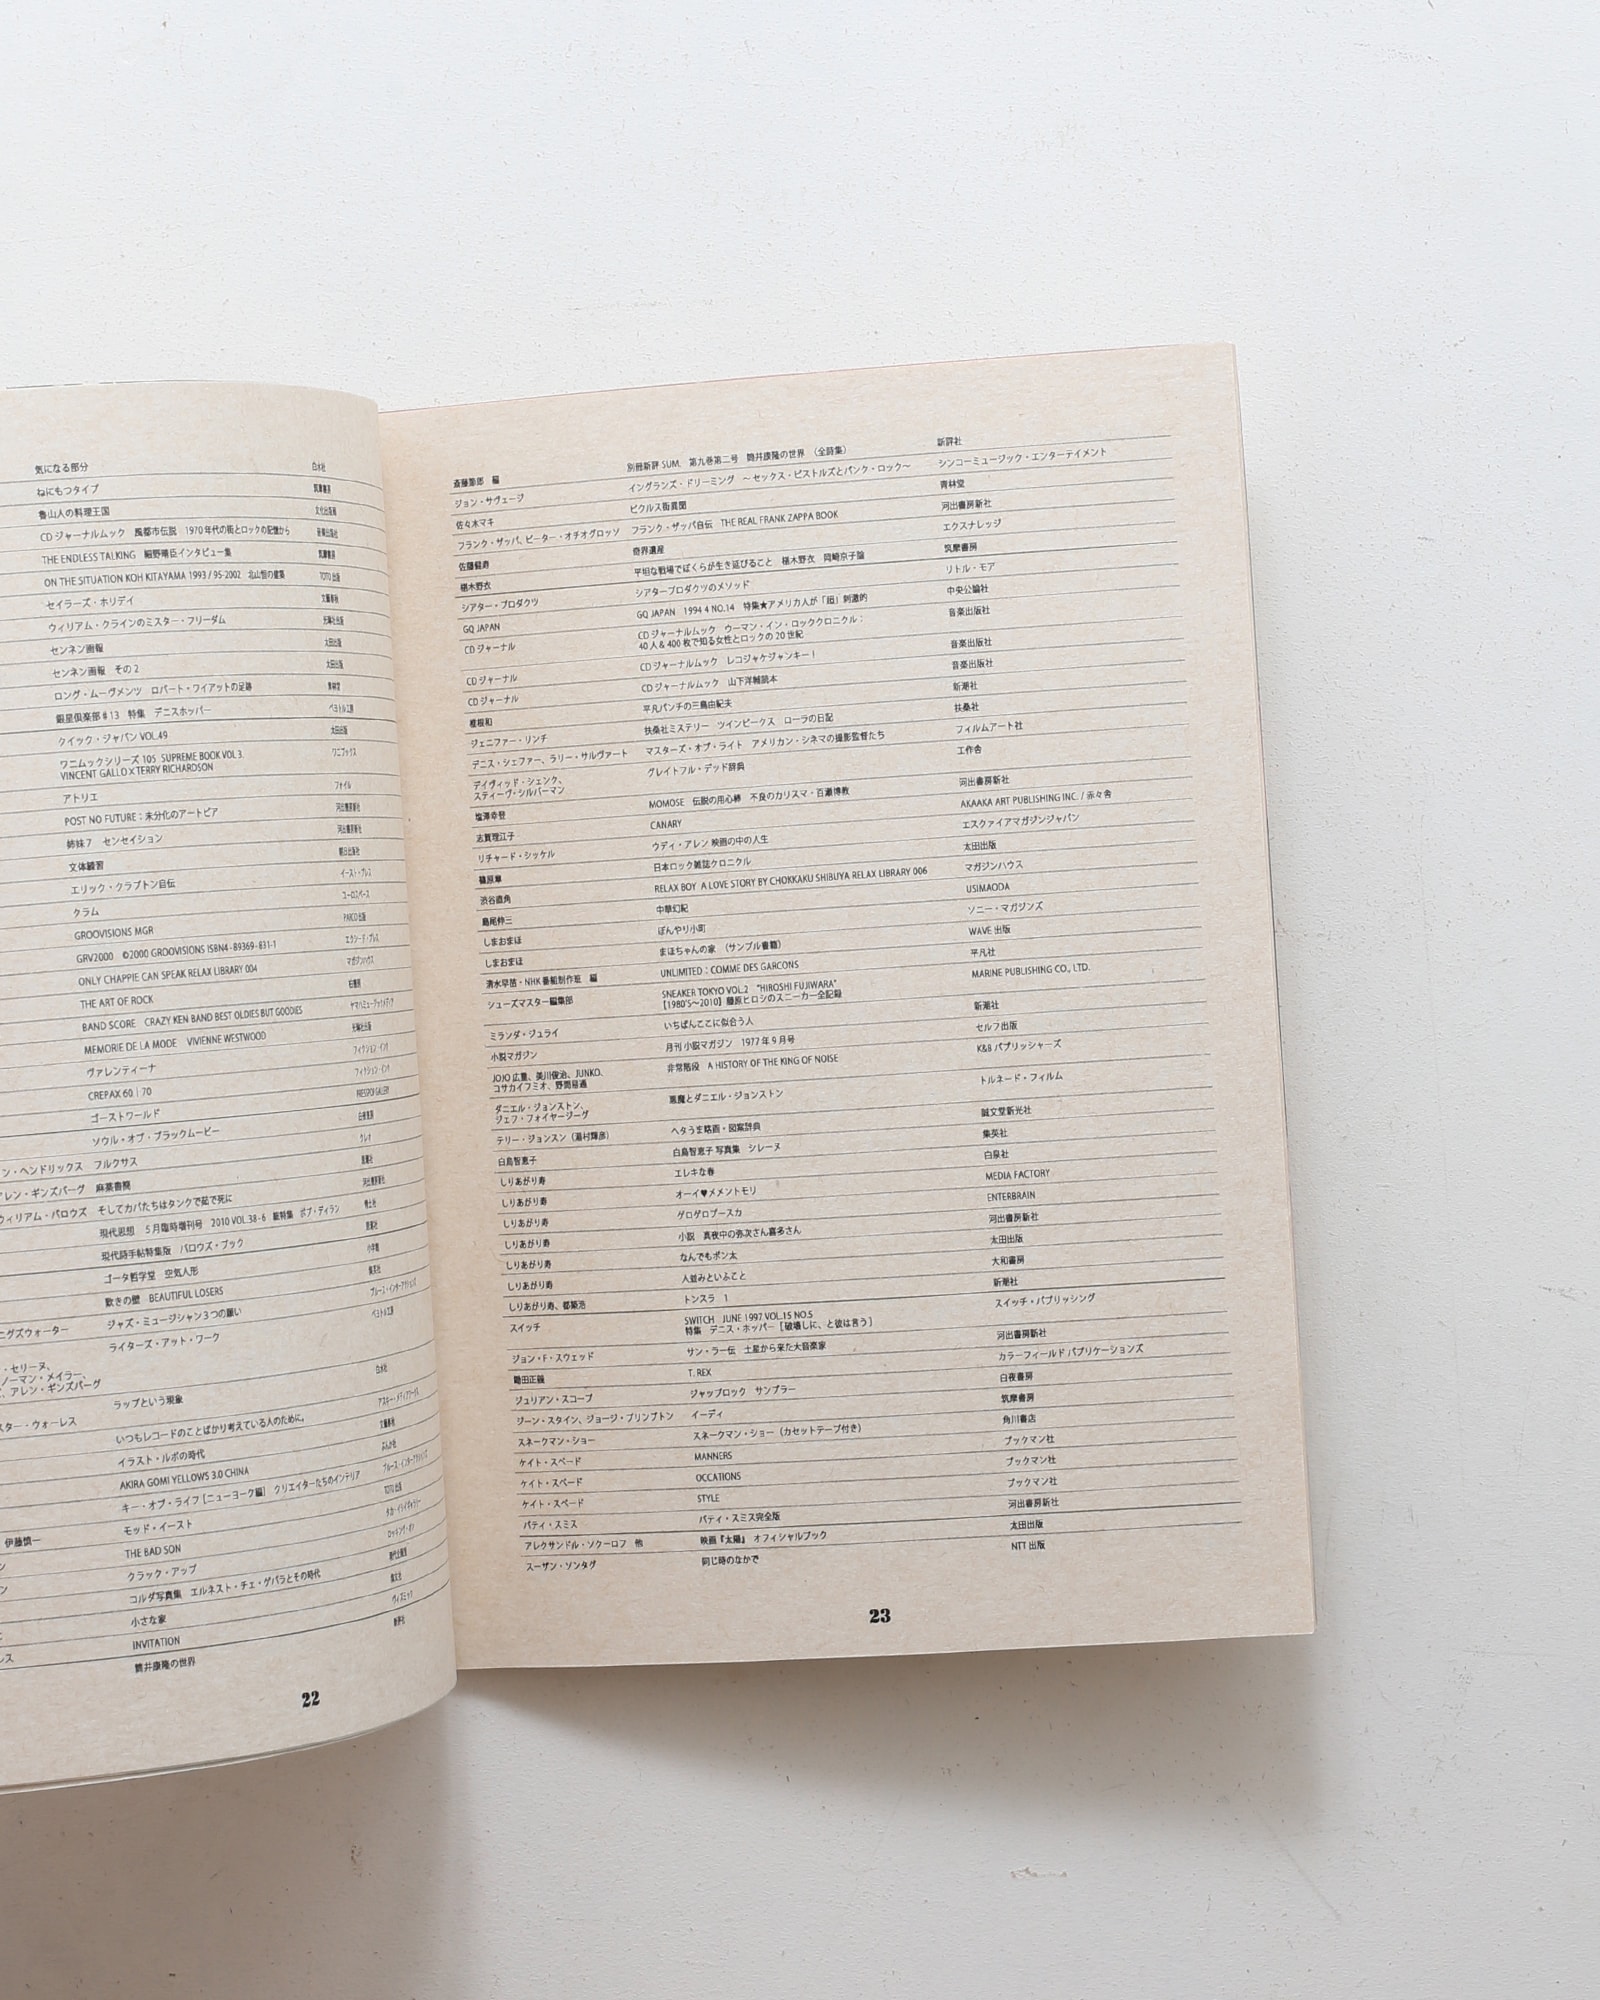 気になる部分 白水社
ねにもつタイプ 筑摩書房
魯山人の料理王国 文化出版局
CDジャーナルムック 風都市伝説 1970年代の街とロックの記憶から 音楽出版社
THE ENDLESS TALKING 細野晴臣インタビュー集 筑摩書房
ON THE SITUATION KOH KITAYAMA 1993 / 95-2002 北山恒の建築 TOTO出版
セイラーズ・ホリデイ 文藝春秋
ウィリアム・クラインのミスター・フリーダム 光琳社出版
センネン画報 太田出版
センネン画報 その2 太田出版
ロング・ムーヴメンツ ロバート・ワイアットの足跡 青林堂
銀星倶楽部#13 特集 デニスホッパー ペヨトル工房
クイック・ジャパン VOL.49 太田出版
ワニムックシリーズ 105 SUPREME BOOK VOL 3. ワニブックス
VINCENT GALLO X TERRY RICHARDSON
アトリエ ファイル
POST NO FUTURE:未分化のアートピア 河出書房新社
姉妹7 センセイション 河出書房新社
文体練習 朝日出版社
エリック・クラプトン自伝 イースト・プレス
クラム ユーロスペース
GROOVISIONS MGR PARCO出版
GRV2000 ©2000 GROOVISIONS ISBN4-89369-831-1 エクシード・プレス
ONLY CHAPPIE CAN SPEAK RELAX LIBRARY 004 マガジンハウス
THE ART OF ROCK
BAND SCORE CRAZY KEN BAND BEST OLDIES BUT GOODIES ヤマハミュージックメディア
MEMORIE DE LA MODE VIVIENNE WESTWOOD 光琳社出版
ヴァレンティーナ フィクション・インク
CREPAX 60 | 70 フィクション・インク
ゴーストワールド PRESSPOP GALLERY
ソウル・オブ・ブラックムービー 白夜書房
ン・ヘンドリックス フルクサス クレオ
アレン・ギンズバーグ 麻薬書簡 思潮社
ウィリアム・バロウズ そしてカバたちはタンクで茹で死に 河出書房新社
現代思想 5月臨時増刊号 2010 VOL.38-6 総特集 ボブ・ディラン 青土社
現代詩手帖特集版 バロウズ・ブック 思潮社
ゴータ哲学堂 空気人形 小学館
歎きの壁 BEAUTIFUL LOSERS 集英社
ニグズウォーター ジャズ・ミュージシャン3つの願い ブルース・インターアクションズ
ライターズ・アット・ワーク ペヨトル工房
・セリーヌ、
ノーマン・メイラー、
、アレン・ギンズバーグ
ラップという現象 白水社
スター・ウォーレス
いつもレコードのことばかり考えている人のために。 アスキー・メディアワークス
イラスト・ルポの時代 文藝春秋
AKIRA GOMI YELLOWS 3.0 CHINA ぶんか社
キー・オブ・ライフ[ニューヨーク編] クリエイターたちのインテリア ブルース・インターアクションズ
伊藤慎一 モッド・イースト TOTO出版
ン THE BAD SON タカ・イシイギャラリー
ン クラック・アップ ロッキング・オン
コルダ写真集 エルネスト・チェ・ゲバラとその時代 現代企画室
小さな家 集文社
INVITATION ヴィズミック
レス 筒井康隆の世界 新評社
22
斎藤節郎 編 別冊新評 SUM. 第九巻第二号 筒井康隆の世界 (全詩集) 新評社
ジョン・サヴェージ イングランズ・ドリーミング ~セックス・ピストルズとパンク・ロック~ シンコーミュージック・エンターテイメント
佐々木マキ ピクルス街異聞 青林堂
フランク・ザッパ、ピーター・オチオグロッソ フランク・ザッパ自伝 THE REAL FRANK ZAPPA BOOK 河出書房新社
佐藤健寿 奇界遺産 エクスナレッジ
椹木野衣 平坦な戦場でぼくらが生き延びること 椹木野衣 岡崎京子論 筑摩書房
シアター・プロダクツ シアタープロダクツのメソッド リトル・モア
GQ JAPAN GQ JAPAN 1994 4 NO.14 特集★アメリカ人が「超」刺激的 中央公論社
CDジャーナル CDジャーナルムック ウーマン・イン・ロッククロニクル: 音楽出版社
40人&400枚で知る女性とロックの20世紀
CDジャーナル CDジャーナルムック レコジャケジャンキー! 音楽出版社
CDジャーナル CDジャーナルムック 山下洋輔読本 音楽出版社
椎根和 平凡パンチの三島由紀夫 新潮社
ジェニファー・リンチ 扶桑社ミステリー ツインピークス ローラの日記 扶桑社
デニス・シェファー、ラリー・サルヴァート マスターズ・オブ・ライト アメリカン・シネマの撮影監督たち フィルムアート社
デイヴィッド・シェンク、 グレイトフル・デッド辞典 工作舎
スティーヴ・シルバーマン
塩澤幸登 MOMOSE 伝説の用心棒 不良のカリスマ・百瀬博教 河出書房新社
志賀理江子 CANARY AKAAKA ART PUBLISHING INC. / 赤々舎
リチャード・シッケル ウディ・アレン 映画の中の人生 エスクァイアマガジンジャパン
篠原章 日本ロック雑誌クロニクル 太田出版
渋谷直角 RELAX BOY A LOVE STORY BY CHOKKAKU SHIBUYA RELAX LIBRARY 006 マガジンハウス
島尾伸三 中華幻紀 USIMAODA
しまおまほ ぼんやり小町 ソニー・マガジンズ
しまおまほ まほちゃんの家 (サンプル書籍) WAVE出版
清水早苗・NHK番組制作班 編 UNLIMITED:COMME DES GARCONS 平凡社
シューズマスター編集部 SNEAKER TOKYO VOL.2 "HIROSHI FUJIWARA" MARINE PUBLISHING CO., LTD.
【1980'S~2010】藤原ヒロシのスニーカー全記録
ミランダ・ジュライ いちばんここに似合う人 新潮社
小説マガジン 月刊 小説マガジン 1977年9月号 セルフ出版
JOJO広重、美川俊治、JUNKO、 非常階段 A HISTORY OF THE KING OF NOISE K&Bパブリッシャーズ
コサカイフミオ、野間易通
ダニエル・ジョンストン、 悪魔とダニエル・ジョンストン トルネード・フィルム
ジェフ・フォイヤージーグ
テリー・ジョンスン(湯村輝彦) ヘタうま略画・図案辞典 誠文堂新光社
白鳥智恵子 白鳥智恵子 写真集 シレーヌ 集英社
しりあがり寿 エレキな春 白泉社
しりあがり寿 オーイ♥メメントモリ MEDIA FACTORY
しりあがり寿 ゲロゲロプースカ ENTERBRAIN
しりあがり寿 小説 真夜中の弥次さん喜多さん 河出書房新社
しりあがり寿 なんでもポン太 太田出版
しりあがり寿 人並みといふこと 大和書房
しりあがり寿、都築浩 トンスラ 1 新潮社
スイッチ SWITCH JUNE 1997 VOL.15 NO.5 スイッチ・パブリッシング
特集 デニス・ホッパー [破壊しに、と彼は言う]
ジョン・F・スウェッド サン・ラー伝 土星から来た大音楽家 河出書房新社
鋤田正義 T. REX カラーフィールド パブリケーションズ
ジュリアン・スコープ ジャップロック サンプラー 白夜書房
ジーン・スタイン、ジョージ・プリンプトン イーディ 筑摩書房
スネークマン・ショー スネークマン・ショー(カセットテープ付き) 角川書店
ケイト・スペード MANNERS ブックマン社
ケイト・スペード OCCATIONS ブックマン社
ケイト・スペード STYLE ブックマン社
パティ・スミス パティ・スミス完全版 河出書房新社
アレクサンドル・ソクーロフ 他 映画『太陽』 オフィシャルブック 太田出版
スーザン・ソンタグ 同じ時のなかで NTT出版
23